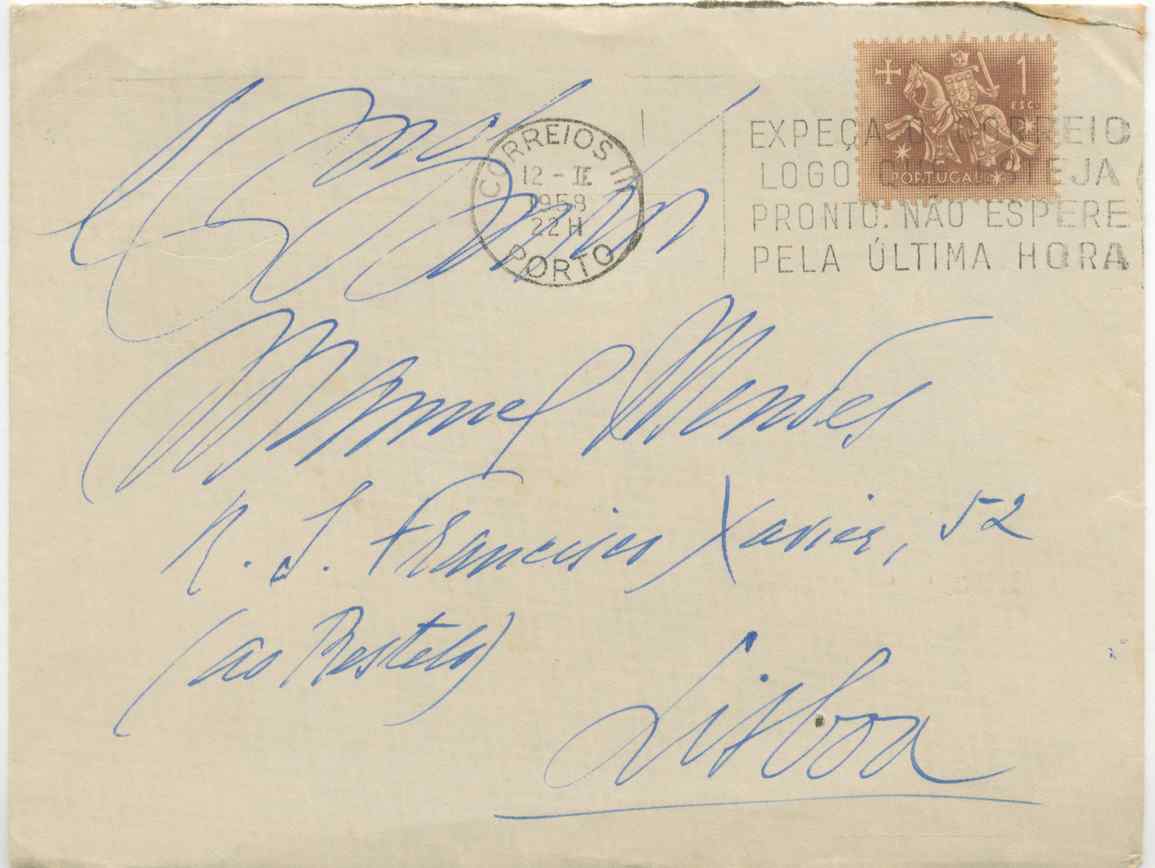 1
ESC.
PORTUGAL
CORREIOS
12 - II
1958
22 H
PORTO
EXPEÇA O CORREIO
LOGO QUE ESTEJA
PRONTO. NÃO ESPERE
PELA ÚLTIMA HORA
Manuel Mendes
R. S. Francisco Xavier, 52
(ao Restelo)
Lisboa